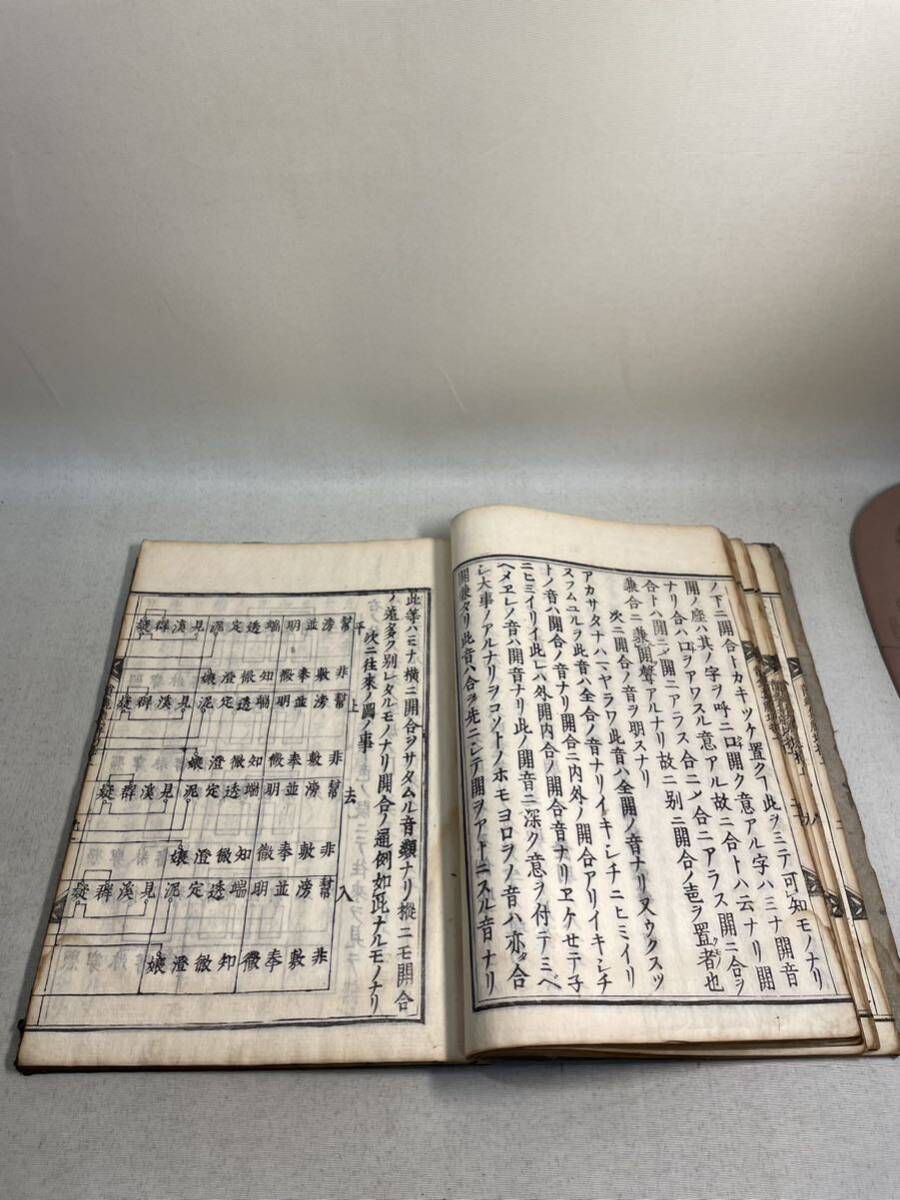 ノ下ニ開合トカキツケ置クヿ此ヲミテ可知モノナリ
開ノ噔ハ其ノ字ヲ呼ニ口開ク意アル字ハミナ開音
ナリ合ハ口ヲアワスル意アル故ニ合トハ云ナリ開
合トハ開ニノ開ニアラス合ニノ合ニアラス開ニ合ヲ
兼合ニ兼開聲アルナリ故ニ別ニ開合ノ壱ヲ置者也
次ニ開合ノ音ヲ明スナリ
アカサタナハマヤラワ此音ハ全開ノ音ナリ又ウクスツ
ヌフムユルラ此音ハ全合ノ音ナリイキシチニヒミイリ
トノ音ハ開合ノ音ナリ開合ニ内外ノ開合アリイキシチ
ニヒミイリイ此レハ外開内合ノ開合音ナリヱケセテ子
ヘメヱレノ音ハ開音ナリ此ノ開音ニ深ク意ヲ付テミベ
シ大事ノアルナリヲコソトノホモヨロヲノ音ハ亦合
開兼タリ此音ハ合ヲ先ニシテ開ヲアトニスル音ナリ
此等ハミナ横ニ開合ヲサタムル音類ナリ縦ニモ開合
ノ道多ク別レタルモノナリ開合ノ通例如此ナルモノナリ
次ニ往來ノ圖ノ事
平 上 去 入
幫滂並明端透定泥見溪群疑
非敷奉微知徹澄孃
幫滂並明端透定泥見溪群疑
非敷奉微知徹澄孃
幫滂並明端透定泥見溪群疑
非敷奉微知徹澄孃
幫滂並明端透定泥見溪群疑
非敷奉微知徹澄孃